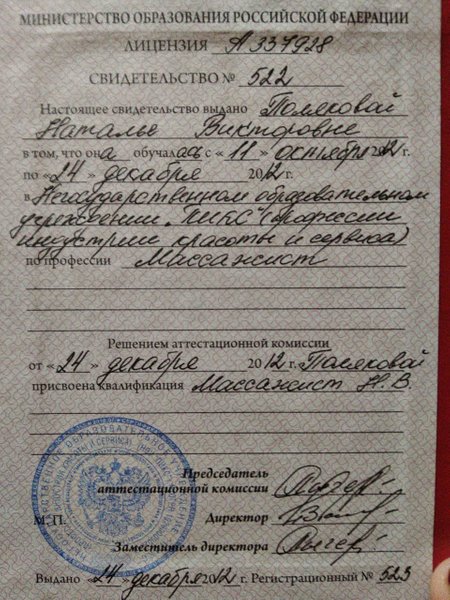 МИНИСТЕРСТВО ОБРАЗОВАНИЯ РОССИЙСКОЙ ФЕДЕРАЦИИ
ЛИЦЕНЗИЯ А 337928
СВИДЕТЕЛЬСТВО № 522
Настоящее свидетельство выдано Поляковой
Наталье Викторовне
в том, что она обучалась с «11» октября 2012 г.
по «24» декабря 2012 г.
в Негосударственном образовательном
учреждении "ПИКС" (профессии
индустрии красоты и сервиса)
по профессии Массажист
Решением аттестационной комиссии
от «24» декабря 2012 г. Поляковой
присвоена квалификация Массажист Н.В.
Председатель
аттестационной комиссии
М.П. Директор
Заместитель директора
Выдано «24» декабря 2012 г. Регистрационный № 523